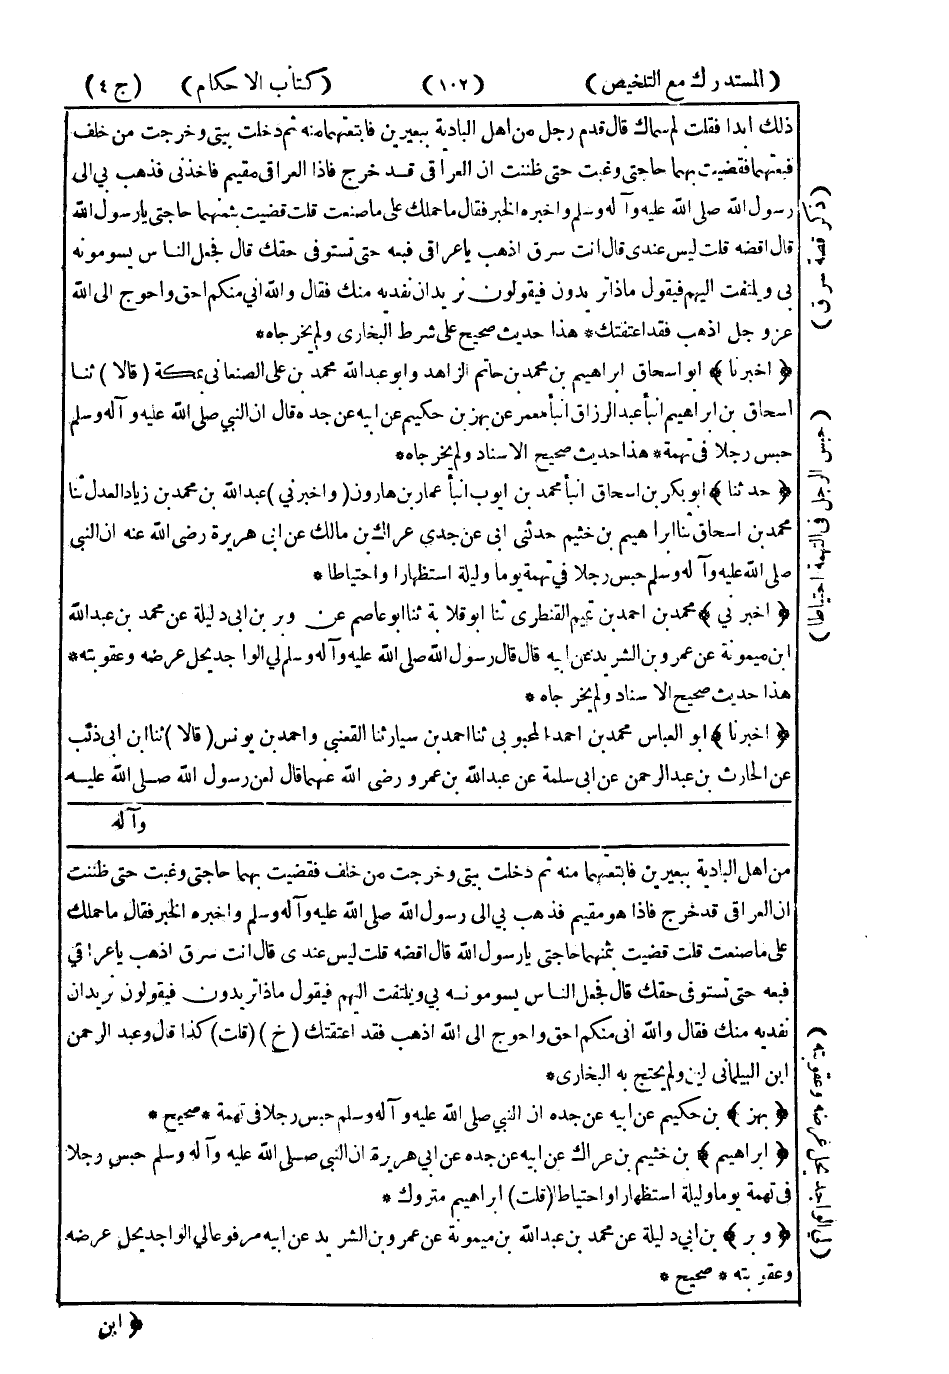 (المستدرك مع التلخيص) (١٠٢) (كتاب الاحكام) (ج ٤)
ذلك ابدا فقلت لم سماك قال قدم رجل من اهل البادية ببعيرين فابتعتهما منه ثم دخلت بيتى وخرجت من خلف
فبعتهما فقضيت بهما حاجتى وغبت حتى ظننت ان العراقى قد خرج فاذا العراقى مقيم فاخذنى فذهب بى الى
رسول الله صلى الله عليه وآله وسلم واخبره الخبر فقال ما حملك على ما صنعت قلت قضيت بثمنهما حاجتى يارسول الله
قال اقضه قلت ليس عندى قال انت سرق اذهب ياعراقى فبعه حتى تستوفى حقك قال فجعل الناس يسومونه
بى ويلتفت اليهم فيقول ماذا تريدون فيقولون نريد ان نفديه منك فقال والله انى منكم احق واحوج الى الله
عزوجل اذهب فقد اعتقتك * هذا حديث صحيح على شرط البخارى ولم يخرجاه *
﴿ اخبرنا ﴾ ابو اسحاق ابراهيم بن محمد بن حاتم الزاهد وابو عبدالله محمد بن على الصنعانى بمكة (قالا) ثنا
اسحاق بن ابراهيم انبأ عبدالرزاق انبأ معمر عن بهز بن حكيم عن ابيه عن جده قال ان النبي صلى الله عليه وآله وسلم
حبس رجلا فى تهمة * هذا حديث صحيح الاسناد ولم يخرجاه *
﴿ حدثنا ﴾ ابو بكر بن اسحاق انبأ محمد بن ايوب انبأ عمار بن هارون (واخبرني) عبدالله بن محمد بن زياد العدل ثنا
محمد بن اسحاق بنا ابراهيم بن خثيم حدثنى ابى عن جدي عراك بن مالك عن ابى هريرة رضى الله عنه ان النبي
صلى الله عليه وآله وسلم حبس رجلا في تهمة يوما وليلة استظهارا واحتياطا *
﴿ اخبرني ﴾ محمد بن احمد بن تميم القنطرى ثنا ابو قلابة ثنا ابو عاصم عن وبر بن ابى دليلة عن محمد بن عبدالله
ابن ميمونة عن عمرو بن الشريد عن ابيه قال قال رسول الله صلى الله عليه وآله وسلم لي الواجد يحل عرضه وعقوبته *
هذا حديث صحيح الاسناد ولم يخرجاه *
﴿ اخبرنا ﴾ ابو العباس محمد بن احمد المحبوبى ثنا احمد بن سيار ثنا القعنبي واحمد بن يونس (قالا) ثنا ابن ابى ذئب
عن الحارث بن عبدالرحمن عن ابى سلمة عن عبدالله بن عمرو رضى الله عنهما قال لعن رسول الله صلى الله عليه
وآله
من اهل البادية ببعيرين فابتعتهما منه ثم دخلت بيتى وخرجت من خلف فقضيت بهما حاجتى وغبت حتى ظننت
ان العراقى قد خرج فاذا هو مقيم فذهب بي الى رسول الله صلى الله عليه وآله وسلم واخبره الخبر فقال ما حملك
على ما صنعت قلت قضيت بثمنهما حاجتى يارسول الله قال اقضه قلت ليس عندى قال انت سرق اذهب ياعراقي
فبعه حتى تستوفى حقك قال فجعل الناس يسومونه بي ويلتفت اليهم فيقول ماذا تريدون فيقولون نريد ان
نفديه منك فقال والله انى منكم احق واحوج الى الله اذهب فقد اعتقتك (خ) (قلت) كذا قال وعبد الرحمن
ابن البيلمانى لين ولم يحتج به البخارى *
﴿ بهز ﴾ بن حكيم عن ابيه عن جده ان النبي صلى الله عليه وآله وسلم حبس رجلا فى تهمة * صحيح *
﴿ ابراهيم ﴾ بن خثيم بن عراك عن ابيه عن جده عن ابي هريرة ان النبي صلى الله عليه وآله وسلم حبس رجلا
فى تهمة يوما وليلة استظهارا واحتياطا (قلت) ابراهيم متروك *
﴿ وبر ﴾ بن ابي دليلة عن محمد بن عبدالله بن ميمونة عن عمرو بن الشريد عن ابيه مرفوعا لي الواجد يحل عرضه
وعقوبته * صحيح *
﴿ ابن
(ذكر قصة سرق)
(حبس الرجل فى التهمة احتياطا)
(لي الواجد يحل عرضه وعقوبته)